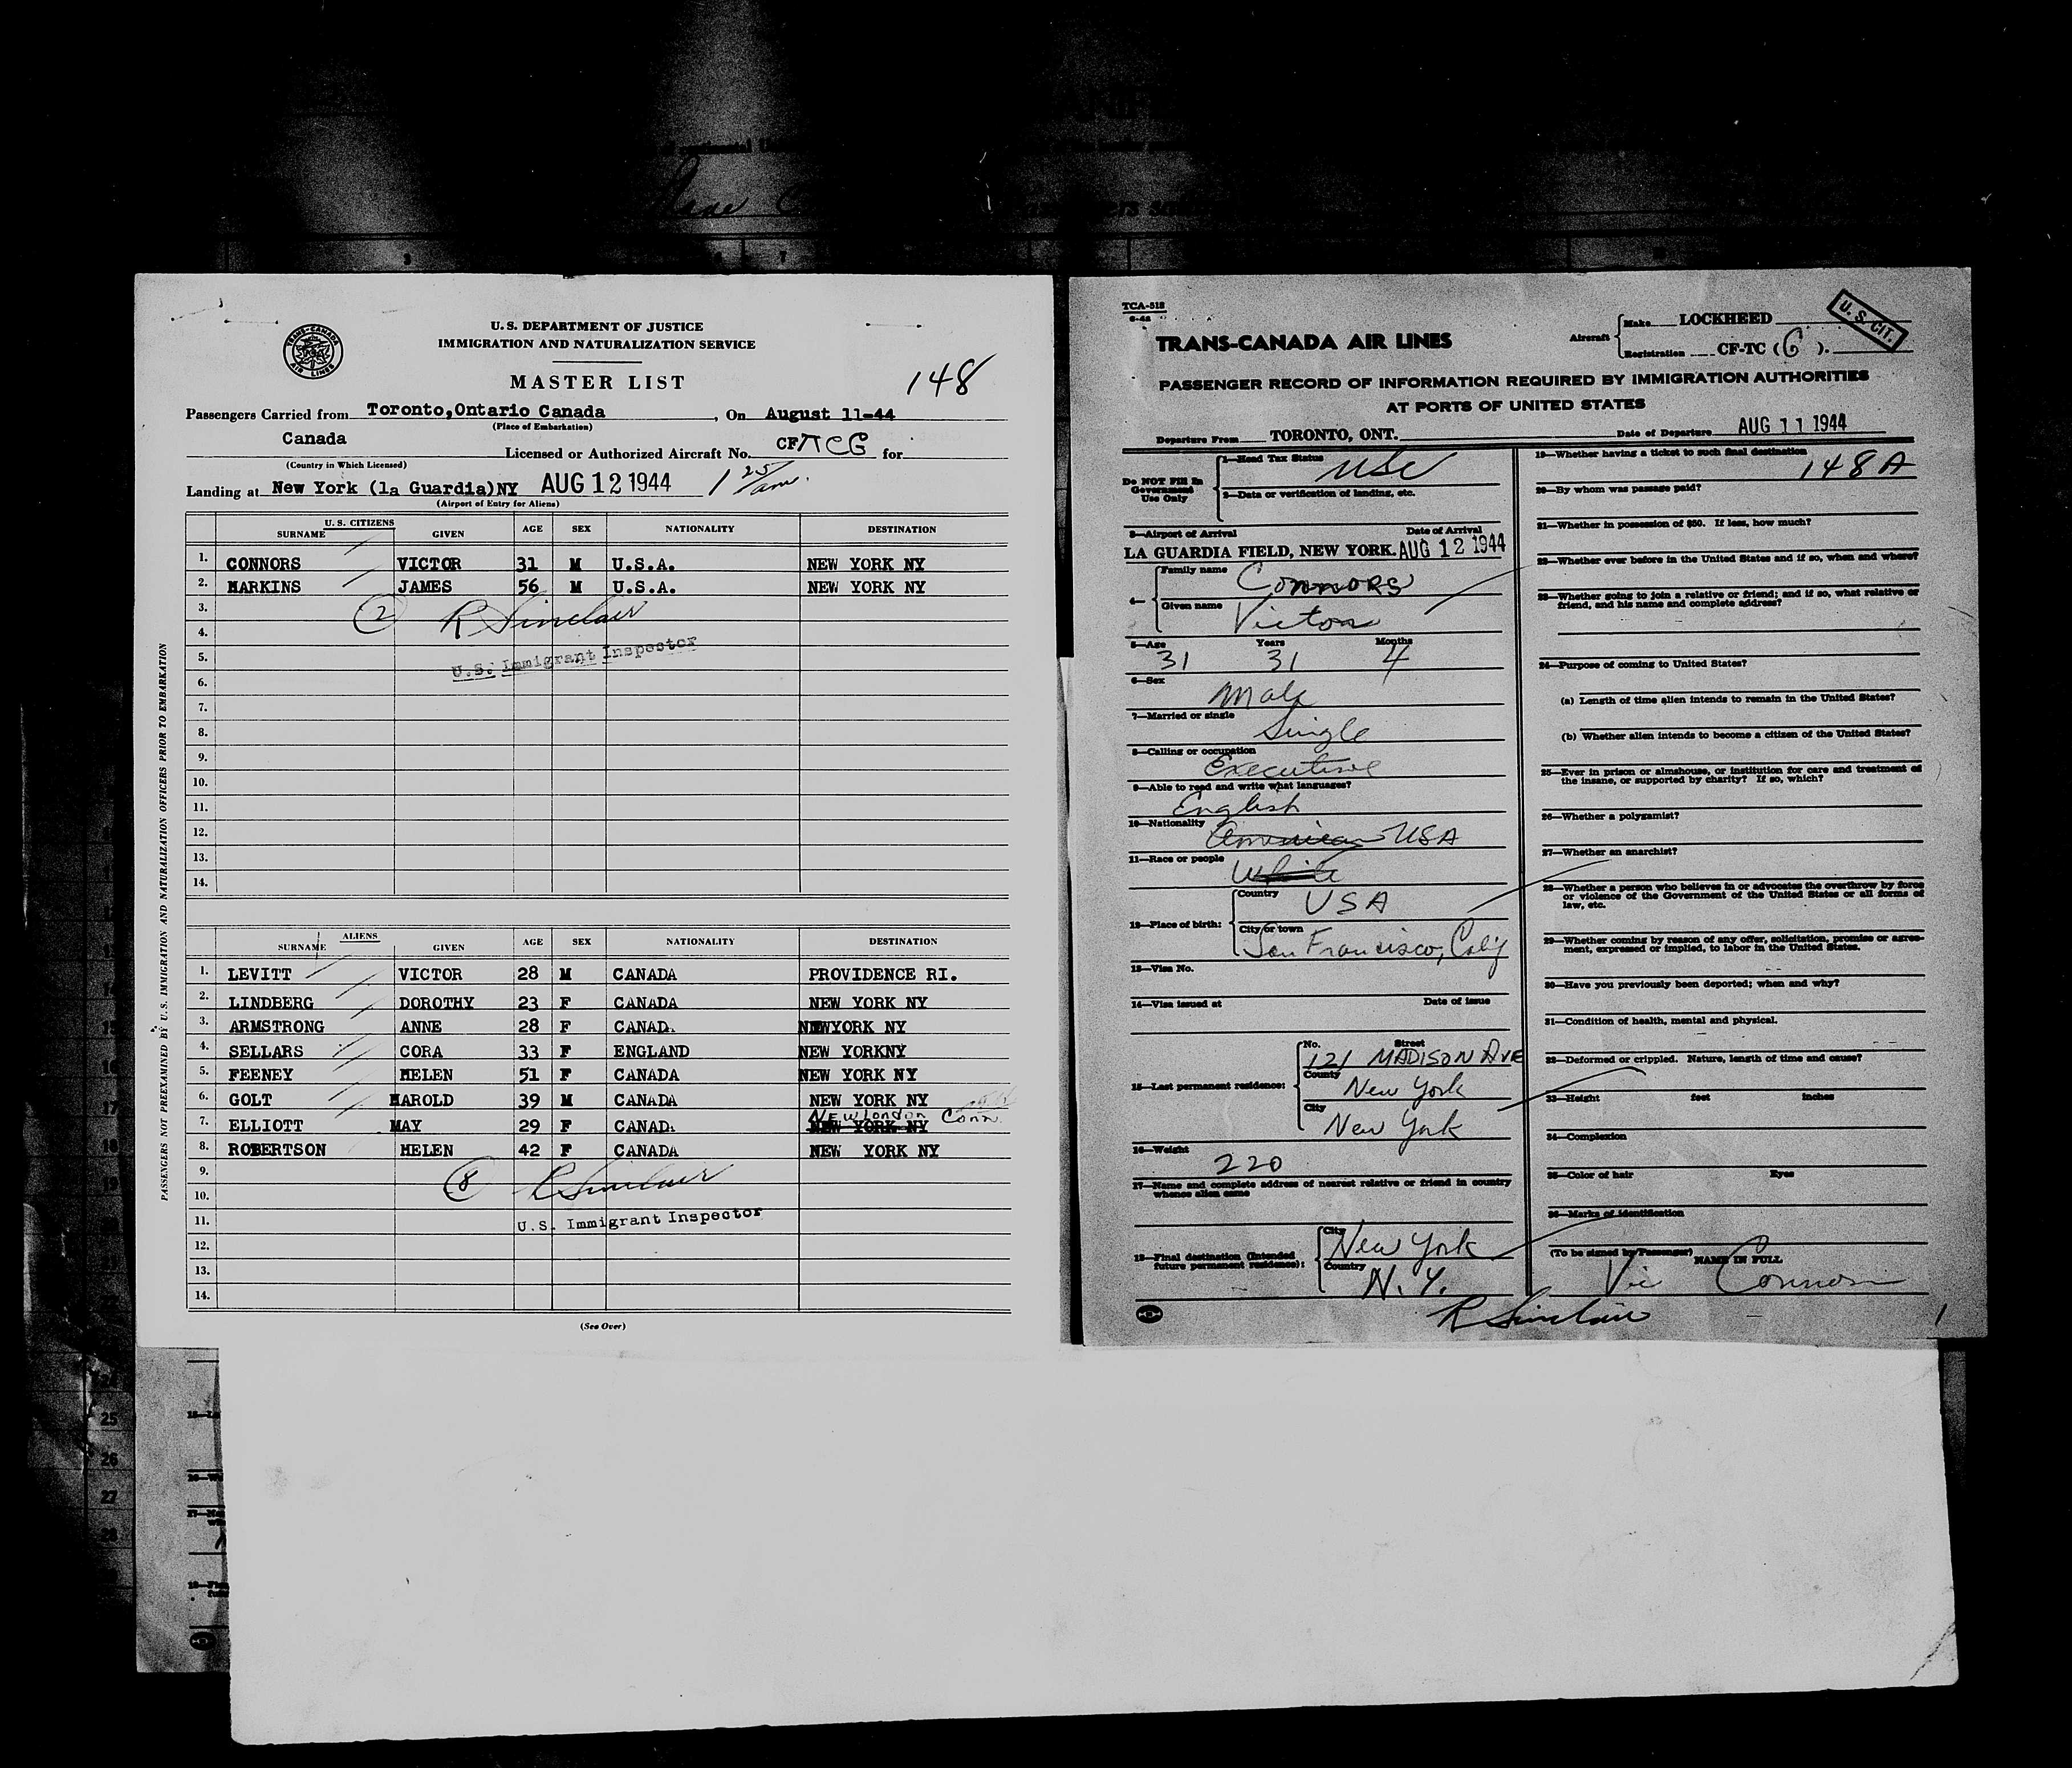 U. S. DEPARTMENT OF JUSTICE
IMMIGRATION AND NATURALIZATION SERVICE
TRANS-CANADA AIR LINES
MASTER LIST
148
Passengers Carried from Toronto, Ontario Canada, On August 11-44
(Place of Embarkation)
Canada Licensed or Authorized Aircraft No. CFTCG for
(Country in Which Licensed)
Landing at New York (la Guardia)NY AUG 12 1944 1 25 am.
(Airport of Entry for Aliens)
U. S. CITIZENS
SURNAME GIVEN AGE SEX NATIONALITY DESTINATION
1. CONNORS VICTOR 31 M U.S.A. NEW YORK NY
2. HARKINS JAMES 56 M U.S.A. NEW YORK NY
3. (2) R Sinclair
4.
5. U.S. Immigrant Inspector
6.
7.
8.
9.
10.
11.
12.
13.
14.
ALIENS
SURNAME GIVEN AGE SEX NATIONALITY DESTINATION
1. LEVITT VICTOR 28 M CANADA PROVIDENCE RI.
2. LINDBERG DOROTHY 23 F CANADA NEW YORK NY
3. ARMSTRONG ANNE 28 F CANAD. NEWYORK NY
4. SELLARS CORA 33 F ENGLAND NEW YORKNY
5. FEENEY HELEN 51 F CANADA NEW YORK NY
6. GOLT HAROLD 39 M CANADA NEW YORK NY
New London Conn.
7. ELLIOTT MAY 29 F CANAD. NEW YORK NY
8. ROBERTSON HELEN 42 F CANADA NEW YORK NY
9. (8) R Sinclair
10.
11. U.S. Immigrant Inspector
12.
13.
14.
(See Over)
PASSENGERS NOT PREEXAMINED BY U. S. IMMIGRATION AND NATURALIZATION OFFICERS PRIOR TO EMBARKATION
TCA-518
6-42
TRANS-CANADA AIR LINES
Aircraft
Make LOCKHEED
Registration CF-TC (G).
U. S. CIT.
PASSENGER RECORD OF INFORMATION REQUIRED BY IMMIGRATION AUTHORITIES
AT PORTS OF UNITED STATES
Departure From TORONTO, ONT. Date of Departure AUG 11 1944
Do NOT Fill In
Government
Use Only
1—Head Tax Status USC
2—Data or verification of landing, etc.
3—Airport of Arrival Date of Arrival
LA GUARDIA FIELD, NEW YORK. AUG 12 1944
4—
Family name Connors
Given name Victor
5—Age Years Months
31 31 4
6—Sex
Male
7—Married or single
Single
8—Calling or occupation
Executive
9—Able to read and write what languages?
English
10—Nationality American USA
11—Race or people White
12—Place of birth:
Country USA
City or town
San Francisco, Calif
13—Visa No.
14—Visa issued at Date of issue
15—Last permanent residence:
No. Street
121 MADISON AVE
County
New York
City
New York
16—Weight
220
17—Name and complete address of nearest relative or friend in country
whence alien came
18—Final destination (Intended
future permanent residence):
City New York
Country
N. Y.
19—Whether having a ticket to such final destination
148A
20—By whom was passage paid?
21—Whether in possession of $50. If less, how much?
22—Whether ever before in the United States and if so, when and where?
23—Whether going to join a relative or friend; and if so, what relative or
friend, and his name and complete address?
24—Purpose of coming to United States?
(a) Length of time alien intends to remain in the United States?
(b) Whether alien intends to become a citizen of the United States?
25—Ever in prison or almshouse, or institution for care and treatment of
the insane, or supported by charity? If so, which?
26—Whether a polygamist?
27—Whether an anarchist?
28—Whether a person who believes in or advocates the overthrow by force
or violence of the Government of the United States or all forms of
law, etc.
29—Whether coming by reason of any offer, solicitation, promise or agree-
ment, expressed or implied, to labor in the United States.
30—Have you previously been deported; when and why?
31—Condition of health, mental and physical.
32—Deformed or crippled. Nature, length of time and cause?
33—Height feet inches
34—Complexion
35—Color of hair Eyes
36—Marks of identification
(To be signed by Passenger) NAME IN FULL
Vic Connors
R Sinclair
1
25
26
27